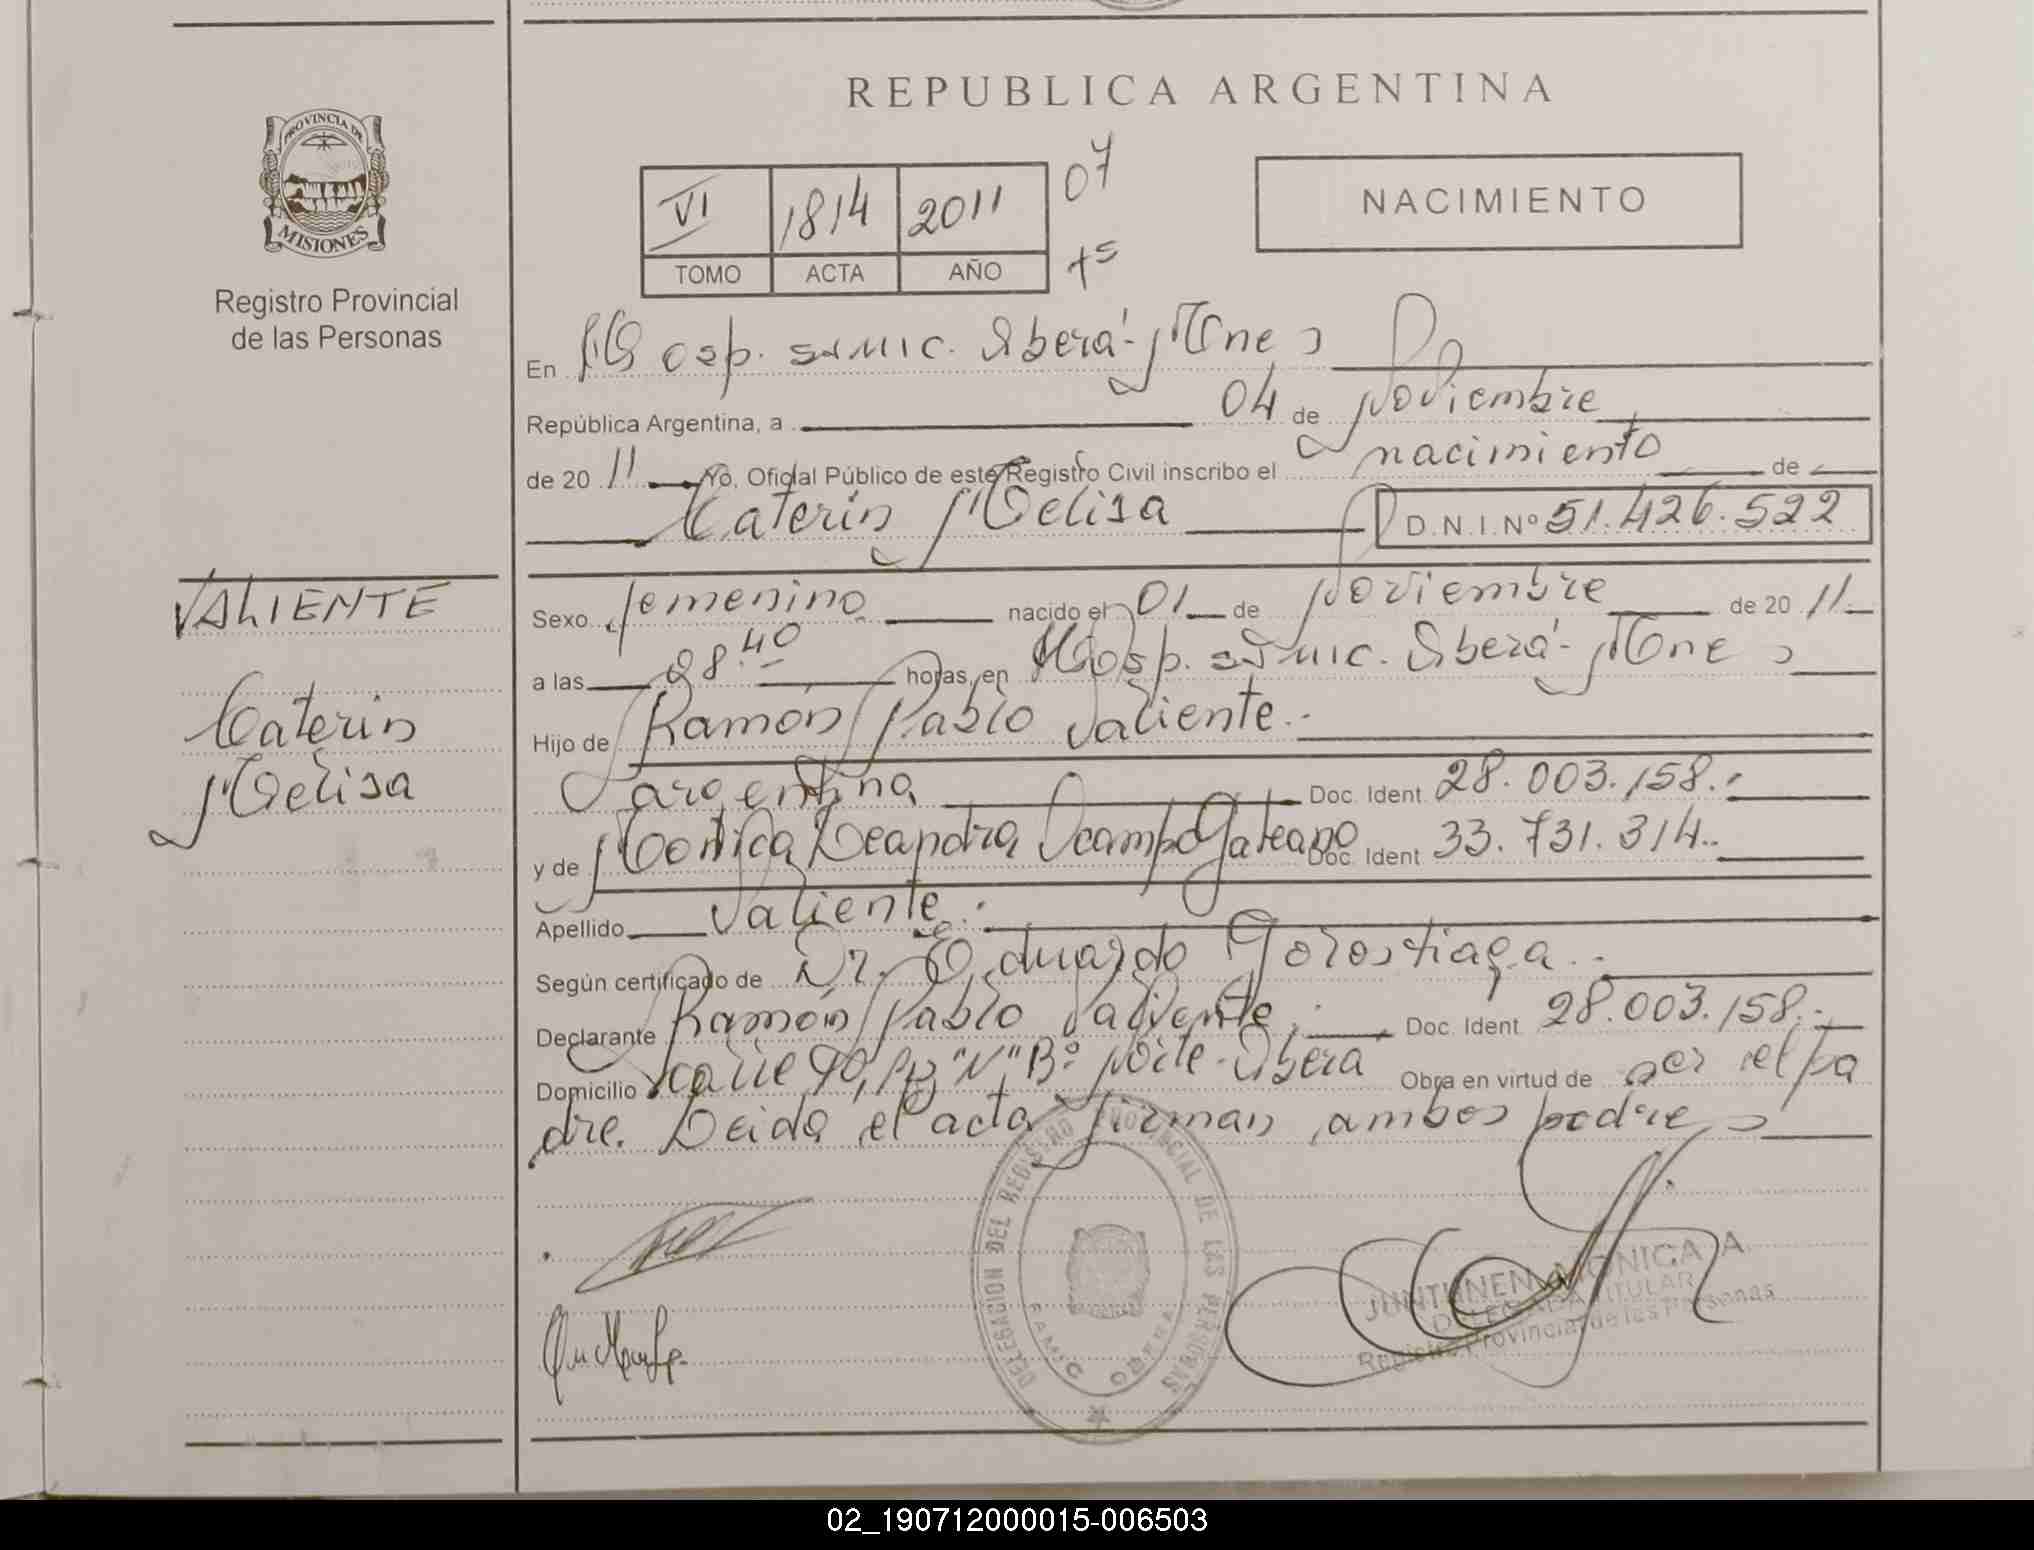 REPUBLICA ARGENTINA
PROVINCIA DE
MISIONES
Registro Provincial
de las Personas
VI 1814 2011 07
TOMO ACTA AÑO
NACIMIENTO
En Hosp. Oberá - Misiones
República Argentina, a 04 de Noviembre
de 20 11 Yo, Oficial Público de este Registro Civil inscribo el nacimiento de
Caterin Melisa D.N.I. Nº 51.426.522
VALIENTE
Caterin
Melisa
Sexo femenino nacido el 01 de Noviembre de 20 11
a las 08.40 horas, en Hosp. Oberá - Misiones
Hijo de Ramón Pablo Valiente.-
argentina Doc. Ident 28.003.158.-
y de Leandra Ocampo Galeano Doc. Ident 33.731.314.-
Apellido Valiente.-
Según certificado de Dr. Eduardo Gorostiaga.-
Declarante Ramón Pablo Valiente.- Doc. Ident 28.003.158.-
Domicilio calle 90, "N" Bº Norte - Oberá Obra en virtud de ser el pa
dre. Leida el acta firman ambos padres
DELEGACION DEL REGISTRO PROVINCIAL DE LAS PERSONAS
OBERA
JUNTUNEN MONICA A
DELEGADA TITULAR
Registro Provincial de las Personas
02_190712000015-006503